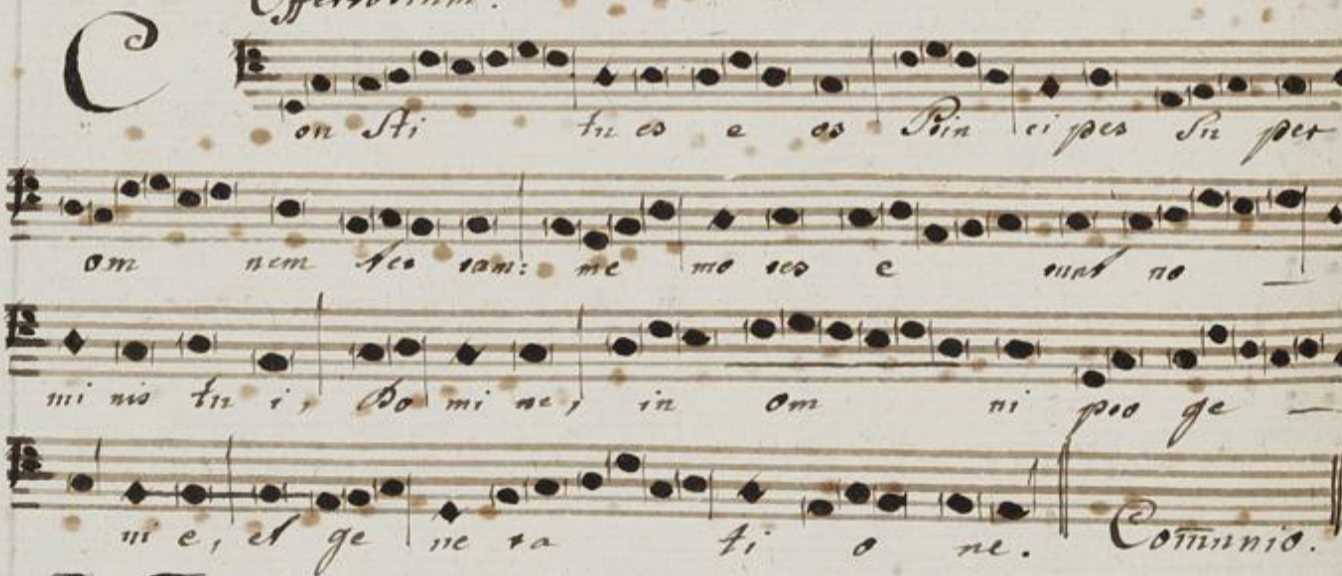 Offertorium.
Con sti tu es e os Prin ci pes su per
om nem ter ram: me mo res e runt no —
mi nis tu i, Do mi ne, in om ni pro ge —
ni e, et ge ne ra ti o ne. Com̅unio.